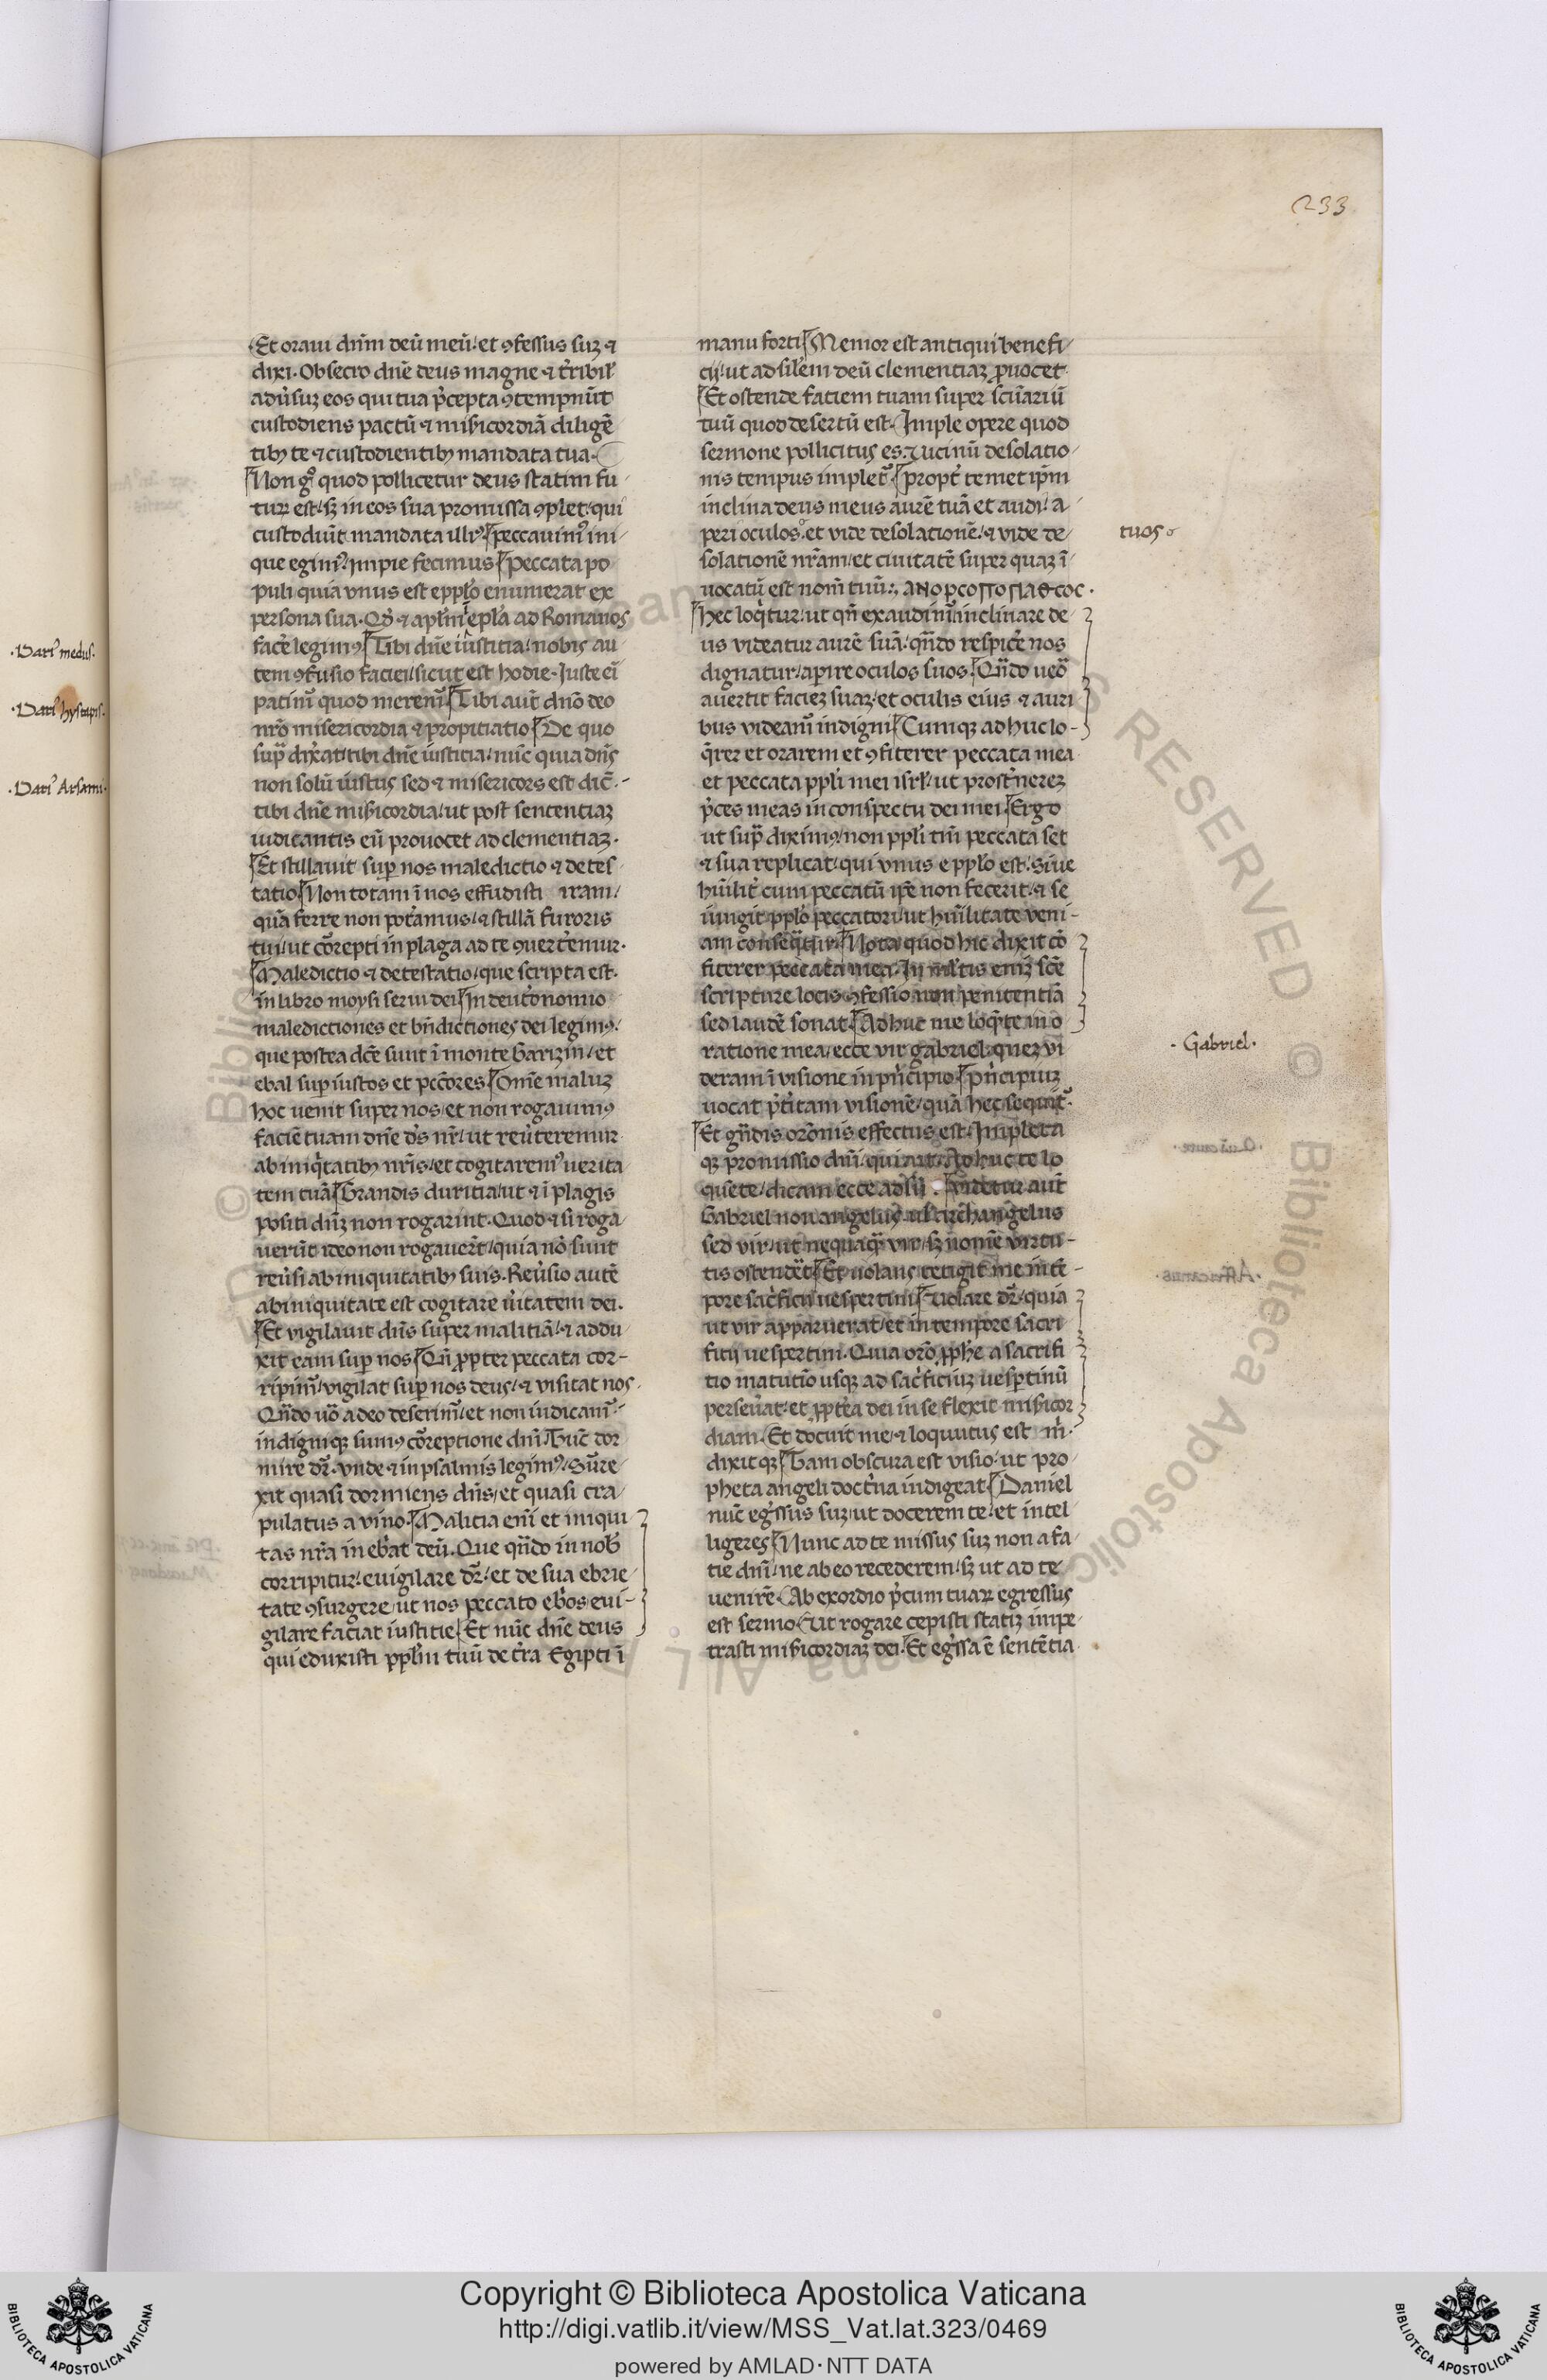 233
Et oraui dñm deũ meũ / et ꝯfessus suꝫ ⁊
dixi . Obsecro dñe deus magne ⁊ t̃ribił
adũsuꝫ eos qui tua p̃cepta ꝯtempnũt
custodiens pactũ ⁊ mißicordiã diligẽ
tibꝫ te ⁊ custodientibꝫ mandata tua .
Non gͦ quod pollicetur deus statim fu
tuꝝ est / sꝫ in eos sua promissa ꝯplet / qui
custodiũt mandata illiꝰ . peccauimꝰ ini
que egimꝰ / Impie fecimus Peccata po
puli quia vnus est e pplo enumerat ex
persona sua . Qd̕ ⁊ apłm ĩ epła ad Romanos
facẽ legimꝰ Tibi dñe iustitia / nobis au
tem ꝯfusio faciei / sicut est hodie . Iuste eĩ
patimꝰ quod meremꝰ Tibi aut̃ dño deo
nr̃o misericordia ⁊ propitiatio De quo
sup̃ dix̃at / tibi dñe iustitia / nũc quia dñs
non solũ iustus sed ⁊ misericors est dic̃ -
tibi dñe mißicordia / ut post sententiaꝫ
iudicantis eũ prouocet ad clementiaꝫ .
Et stillauit sup̱ nos maledictio ⁊ detes
tatio Non totam ĩ nos effudisti iram /
quã ferre non pot̃amus / ⁊ stillã furoris
tui / ut cõrepti in plaga ad te ꝯuert̃emur .
Maledictio ⁊ detestatio / que scripta est .
in libro moysi serui dei In deut̃onomio
maledictiones et bñdictiones dei legimꝰ /
que postea dc̃e sunt ĩ monte Garizin / et
ebal sup̱ iustos et pcc̃ores Om̃e maluꝫ
hoc uenit super nos / et non rogauimꝰ
faciẽ tuam dñe ds̃ nr̃ / ut reũteremur
ab iniq̃tatibꝫ nr̃is / et cogitaremꝰ uerita
tem tuã Grandis duritia / ut ⁊ ĩ plagis
positi dñꝫ non rogarint . Quod ⁊ si roga
uerũt ideo non rogauer̃t / quia nõ sunt
reũsi ab iniquitatibꝫ suis . Reũsio autẽ
ab iniquitate est cogitare ũitatem dei .
Et vigilauit dñs super malitiã / ⁊ addu
xit eam sup̱ nos Qñ ꝓpter peccata cor -
ripimꝰ / vigilat sup̱ nos deus / ⁊ visitat nos .
Qñdo uõ a deo deserimꝰ / et non iudicamꝰ
indigniqꝫ sumꝰ cõreptione dñi . Tũc dor
mire dr̃ . vnde ⁊ in psalmis legimꝰ / Sũre
xit quasi dormiens dñs / et quasi cra
pulatus a vino . Malitia eñi et iniqui
tas nr̃a inebr̃at deũ . Que qñdo in nob̃
corripitur / euigilare dr̃ / et de sua ebrie
tate ꝯsurgere / ut nos peccato ebr̃os eui -
gilare faciat iustitie Et nũc dñe deus
qui eduxisti pp̱łm tuũ de t̃ra Egipti ĩ
manu forti Memor est antiqui benefi
cij / ut ad siłem deũ clementiaꝫ ꝓuocet
Et ostende faciem tuam super scũariũ
tuũ quod desertũ est . Imple opere quod
sermone pollicitus es . Uicinũ desolatio
nis tempus impletꝰ . Propt̃ temet ip̃m
inclina deus meus aurẽ tuã et audi / a
peri oculos . et vide desolationẽ / ⁊ vide de
solationẽ nr̃am / et ciuitatẽ super quaꝫ ĩ
uocatũ est nom̃ tuũ :
Hec loq̃tur / ut qñ exaudimꝰ inclinare de
us videatur aurẽ suã . qñdo respic̃e nos
dignatur / aperire oculos suos . Qñdo ueõ
auertit facieꝫ suaꝫ / et oculis eius ⁊ auri
bus videamꝰ indigni Cumqꝫ adhuc lo -
q̃rer et orarem et ꝯfiterer peccata mea
et peccata ppłi mei isrł / ut prost̃nereꝫ
p̃ces meas in conspectu dei mei Ergo
ut sup̃ diximꝰ / non ppłi tm̃ peccata sꝫ et
⁊ sua replicat / qui vnus e pplo est . Siue
hũilit̃ cum peccatũ ip̃e non fecerit / ⁊ se
iungit pplo peccatori / ut hũilitate veni -
am conseq̃tur . Nota quod hic dixit cõ
fiterer peccata mea . In młtis eniꝫ sc̃e
scripture locis ꝯfessio non penitentiã
sed laudẽ sonat . Adhuc me loq̃nte in o
ratione mea / ecce vir gabriel . queꝫ vi
deram ĩ visione in pñcipio Pñcipiuꝫ
uocat p̃titam visionẽ / quã hec sequitꝰ .
Et gñdis orõnis effectus est . Impleta
qꝫ promissio dñi / qui ait . Adhuc te lo
quẽte / dicam ecce adsũ . Videtur aut̃
Gabriel non angelus uł archangelus
sed vir / ut nequaq̃ vir / sꝫ nomẽ virtu -
tis ostendẽt Et uolans tetigit me in tẽ -
pore sac̃ficij uespertini Uolare dr̃ / quia
ut vir apparuerat / et in tempore sacri
ficij uespertini . Quia orõ ꝓphe a sacrifi
cio matutĩo usqꝫ ad sac̃ficiuꝫ uesp̱tinũ
perseũat / et ꝓpt̃ea dei in se flexit mißicor
diam . Et docuit me / ⁊ loquutus est m̃ .
dixitqꝫ Tam obscura est visio / ut pro
pheta angeli doct̃na indigeat Daniel
nũc egr̃ssus suꝫ / ut docerem te / et intel
ligeres Nunc ad te missus suꝫ non a fa
cie dñi / ne ab eo recederem / sꝫ ut ad te
uenirẽ Ab exordio p̃cum tuaꝝ egressus
est sermo Ut rogare cepisti statiꝫ impe
trasti mißicordiaꝫ dei . Et egr̃ssa ẽ sentẽtia
tuos
. Gabriel .
. Dariꝰ medus .
. Dariꝰ hystapis .
. Dariꝰ Arsami .
Copyright © Biblioteca Apostolica Vaticana
http://digi.vatlib.it/view/MSS_Vat.lat.323/0469
powered by AMLAD·NTT DATA
BIBLIOTECA APOSTOLICA VATICANA
BIBLIOTECA APOSTOLICA VATICANA